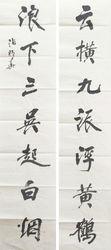 云横九派浮黄鹤
浪下三吴起白烟